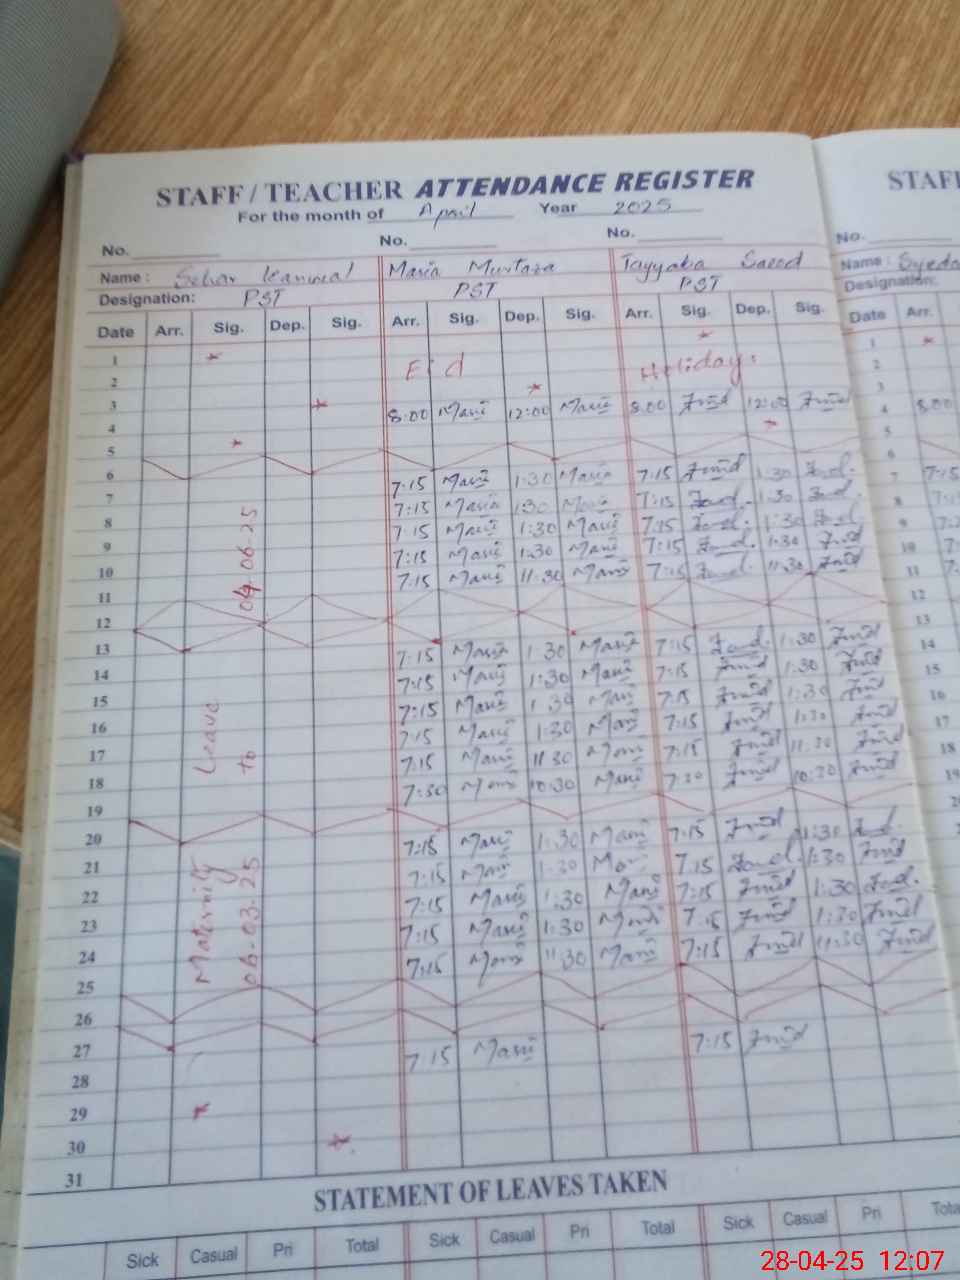 STAFF / TEACHER ATTENDANCE REGISTER
STAFF
For the month of April Year 2025
No. No. No. No.
Name : Sehar Kanwal Maria Murtaza Tayyaba Saeed Name : Syeda
Designation: PST PST PST Designation:
Date Arr. Sig. Dep. Sig. Arr. Sig. Dep. Sig. Arr. Sig. Dep. Sig. Date Arr.
1 1
2 Eid Holiday: 2
3 3
4 8:00 Maria 12:00 Maria 8:00 12:00 4 8:00
5 5
6 6
7 7:15 Maria 1:30 Maria 7:15 1:30 7 7:15
8 7:15 Maria 1:30 Maria 7:15 1:30 8
9 7:15 Maria 1:30 Maria 7:15 1:30 9
10 7:15 Maria 1:30 Maria 7:15 1:30 10
11 7:15 Maria 11:30 Maria 7:15 11:30 11
12 12
13 13
14 7:15 Maria 1:30 Maria 7:15 1:30 14
15 7:15 Maria 1:30 Maria 7:15 1:30 15
16 7:15 Maria 1:30 Maria 7:15 1:30 16
17 7:15 Maria 1:30 Maria 7:15 1:30 17
18 7:15 Maria 11:30 Maria 7:15 11:30 18
19 7:30 Maria 10:30 Maria 7:30 10:30 19
20
21 7:15 Maria 1:30 Maria 7:15 1:30
22 7:15 Maria 1:30 Maria 7:15 1:30
23 7:15 Maria 1:30 Maria 7:15 1:30
24 7:15 Maria 1:30 Maria 7:15 1:30
25 7:15 Maria 11:30 Maria 7:15 11:30
26
27
28 7:15 Maria 7:15
29
30
31
Maternity Leave
06-03-25 to 04-06-25
STATEMENT OF LEAVES TAKEN
Sick Casual Pri Total Sick Casual Pri Total Sick Casual Pri Total
28-04-25 12:07